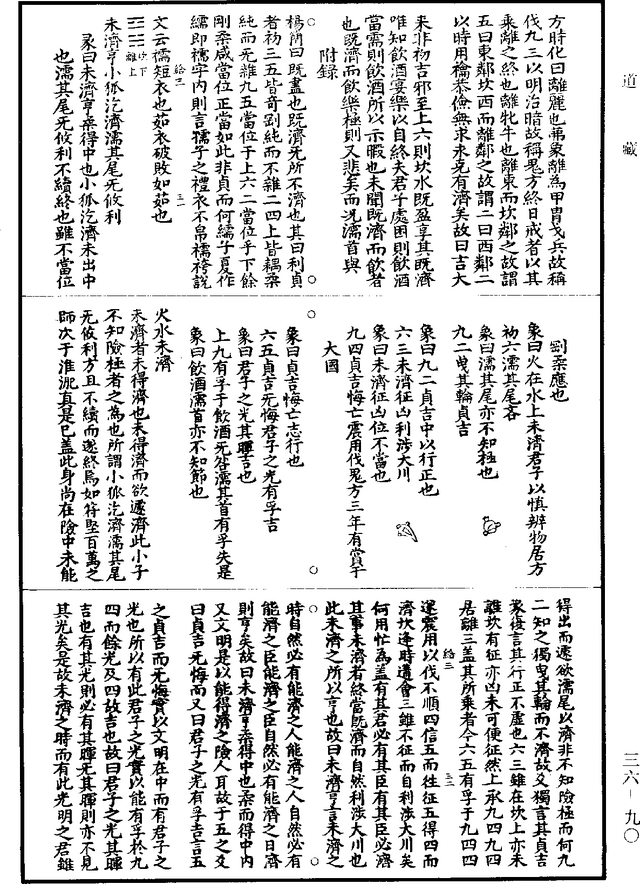 道藏
方時化曰離麗也弗象離為甲胄戈兵故稱
伐九三以明治暗故稱鬼方終日戒者以其
乘離之終也離牝牛也離東而坎鄰之故謂
五曰東鄰坎西而離鄰之故謂二曰西鄰二
以時用禴恭儉無求未克有濟矣故曰吉大
來非初吉邪至上六則坎水既盈享其既濟
唯知飲酒宴樂以自終夫君子處困則飲酒
當需則飲酒所以示暇也未聞既濟而飲者
也既濟而飲樂極則又悲矣而况濡首與
附錄
楊簡曰既盡也既濟无所不濟也其曰利貞
者初三五皆奇剛純而不雜二四上皆耦柔
純而无雜九五當位于上六二當位乎下餘
剛柔咸當位正當如此非貞而何繻子夏作
繻即襦字内則言儒子之禮衣不帛襦袴說
文云襦短衣也茹衣破敗如茹也
給三
三一
坎下
離上
未濟亨小狐汔濟濡其尾无攸利
彖曰未濟亨柔得中也小狐汔濟未出中
也濡其尾无攸利不續終也雖不當位
剛柔應也
象曰火在水上未濟君子以慎辨物居方
初六濡其尾吝
象曰濡其尾亦不知極也
九二曳其輪貞吉
象曰九二貞吉中以行正也
六三未濟征凶利涉大川
象曰未濟征凶位不當也
九四貞吉悔亡震用伐鬼方三年有賞于
大國
象曰貞吉悔亡志行也
六五貞吉无悔君子之光有孚吉
象曰君子之光其暉吉也
上九有孚于飲酒无咎濡其首有孚失是
象曰飲酒濡首亦不知節也
火水未濟
未濟者未得濟也未得濟而欲遽濟此小子
不知險極者之為也所謂小狐汔濟濡其尾
无攸利方且不續而遽終焉如符堅百萬之
師次于淮淝真是已蓋此身尚在險中未能
得出而遽欲濡尾以濟非不知險極而何九
二知之獨曳其輪而不濟故爻獨言其貞吉
象復言其行正不虛也六三雖在坎上亦未
離坎有征亦凶未可便征然上承九四九四
居離三蓋其所乘者今六五有孚于九四四
給三
三二
遂震用以伐不順四信五而往征五得四而
濟坎逢時遭會三雖不征而自利涉大川矣
何用忙為蓋有其君必有其臣有其臣必濟
其事未濟者終當既濟而自然利涉大川也
此未濟之所以亨也故曰未濟亨言未濟之
時自然必有能濟之人能濟之人自然必有
能濟之臣能濟之臣自然必有能濟之日濟
則亨矣故曰未濟亨柔得中也柔而得中内
又文明是以能得濟之險人耳故于五之爻
曰貞吉无悔而又曰君子之光有孚吉言五
之貞吉而无悔實以文明在中而有君子之
光也所以有此君子之光實以能有孚於九
四而餘光及四故吉也故曰君子之光其暉
吉也有其光則必有其暉无其暉則亦不見
其光矣是故未濟之時而有此光明之君雖
三六－九〇